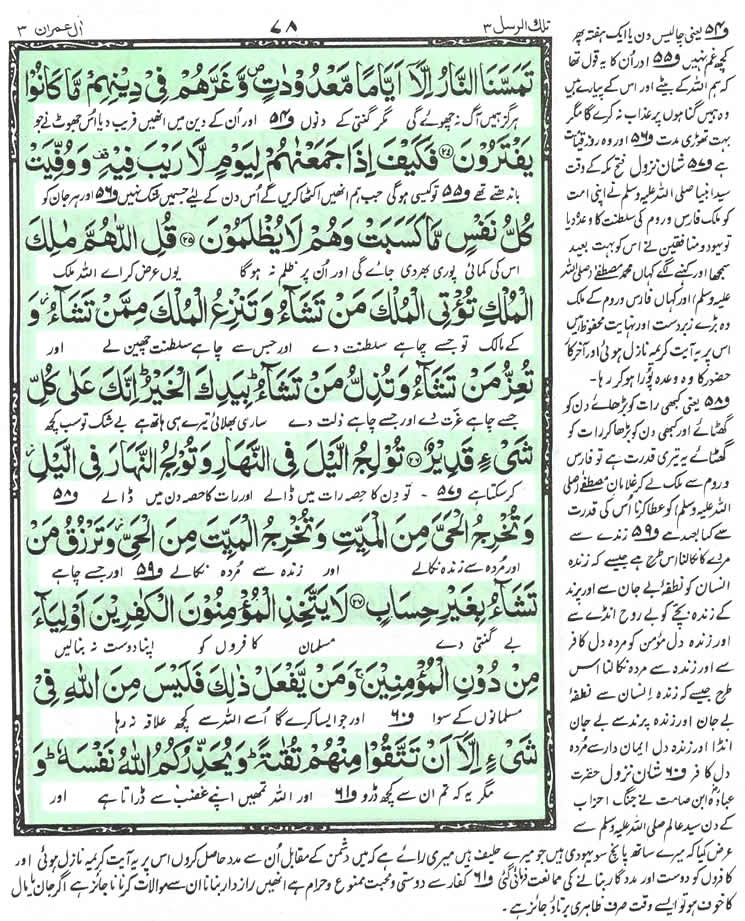 تلك الرسل ٣
٧٨
اٰل عمران ٣
تَمَسَّنَا النَّارُ اِلَّاۤ اَيَّامًا مَّعْدُوْدٰتٍ ۪ وَّغَرَّهُمْ فِيْ دِيْنِهِمْ مَّا كَانُوْا
ہرگز ہمیں آگ نہ چھوئے گی مگر گنتی کے دنوں و۵۴ اور ان کے دین میں انھیں فریب دیا اس جھوٹ نے جو
يَفْتَرُوْنَ ﴿۲۴﴾ فَكَيْفَ اِذَا جَمَعْنٰهُمْ لِيَوْمٍ لَّا رَيْبَ فِيْهِ ۫ وَوُفِّيَتْ
باندھتے تھے و۵۵ تو کیسی ہوگی جب ہم انھیں اکٹھا کریں گے اُس دن کے لیئے جسمیں شک نہیں و۵۶ اور ہر جان کو
كُلُّ نَفْسٍ مَّا كَسَبَتْ وَهُمْ لَا يُظْلَمُوْنَ ﴿۲۵﴾ قُلِ اللّٰهُمَّ مٰلِكَ
اس کی کمائی پوری بھردی جائے گی اور اُن پر ظلم نہ ہوگا یوں عرض کر اے اللہ ملک
الْمُلْكِ تُؤْتِي الْمُلْكَ مَنْ تَشَآءُ وَتَنْزِعُ الْمُلْكَ مِمَّنْ تَشَآءُ ۫ وَ
کے مالک تو جسے چاہے سلطنت دے اور جس سے چاہے سلطنت چھین لے اور
تُعِزُّ مَنْ تَشَآءُ وَتُذِلُّ مَنْ تَشَآءُ ؕ بِيَدِكَ الْخَيْرُ ؕ اِنَّكَ عَلٰى كُلِّ
جسے چاہے عزت دے اور جسے چاہے ذلت دے ساری بھلائی تیرے ہی ہاتھ ہے بے شک تو سب کچھ
شَيْءٍ قَدِيْرٌ ﴿۲۶﴾ تُوْلِجُ الَّيْلَ فِي النَّهَارِ وَتُوْلِجُ النَّهَارَ فِي الَّيْلِ ۫
کرسکتا ہے و۵۷ - تو دن کا حصہ رات میں ڈالے اور رات کا حصہ دن میں ڈالے و۵۸
وَتُخْرِجُ الْحَيَّ مِنَ الْمَيِّتِ وَتُخْرِجُ الْمَيِّتَ مِنَ الْحَيِّ ۫ وَتَرْزُقُ مَنْ
اور مردہ سے زندہ نکالے اور زندہ سے مردہ نکالے و۵۹ اور جسے چاہے
تَشَآءُ بِغَيْرِ حِسَابٍ ﴿۲۷﴾ لَا يَتَّخِذِ الْمُؤْمِنُوْنَ الْكٰفِرِيْنَ اَوْلِيَآءَ
بے گنتی دے مسلمان کافروں کو اپنا دوست نہ بنالیں
مِنْ دُوْنِ الْمُؤْمِنِيْنَ ۚ وَمَنْ يَّفْعَلْ ذٰلِكَ فَلَيْسَ مِنَ اللّٰهِ فِيْ
مسلمانوں کے سوا و۶۰ اور جو ایسا کرے گا اُسے اللہ سے کچھ علاقہ نہ رہا
شَيْءٍ اِلَّاۤ اَنْ تَتَّقُوْا مِنْهُمْ تُقٰىةً ؕ وَيُحَذِّرُكُمُ اللّٰهُ نَفْسَهٗ ؕ وَ
مگر یہ کہ تم ان سے کچھ ڈرو و۶۱ اور اللہ تمھیں اپنے غضب سے ڈراتا ہے اور
و۵۴ یعنی چالیس دن یا ایک ہفتہ پھر
کچھ غم نہیں و۵۵ اور اُن کا یہ قول تھا
کہ ہم اللہ کے بیٹے اور اس کے پیارے ہیں
وہ ہمیں گناہوں پر عذاب نہ کرے گا مگر
بہت تھوڑی مدت و۵۶ اور وہ روز قیامت
ہے و۵۷ شان نزول فتح مکہ کے وقت
سید انبیا صلی اللہ علیہ وسلم نے اپنی امت
کو ملک فارس و روم کی سلطنت کا وعدہ دیا
تو یہود و منافقین نے اس کو بہت بعید
سمجھا اور کہنے لگے کہاں محمد مصطفےٰ (صلی اللہ
علیہ وسلم) اور کہاں فارس و روم کے ملک
وہ بڑے زبردست اور نہایت محفوظ ہیں
اس پر یہ آیت کریمہ نازل ہوئی اور آخر کار
حضور کا وہ وعدہ پورا ہو کر رہا-
و۵۸ یعنی کبھی رات کو بڑھائے دن کو
گھٹائے اور کبھی دن کو بڑھا کر رات کو
گھٹائے یہ تیری قدرت ہے تو فارس
و روم سے ملک لے کر غلامان مصطفےٰ (صلی
اللہ علیہ وسلم) کو عطا کرنا اس کی قدرت
سے کیا بعید ہے و۵۹ زندے سے
مردے کا نکالنا اس طرح ہے جیسے کہ زندہ
انسان کو نطفۂ بے جان سے اور پرند
کے زندہ بچے کو بے روح انڈے سے
اور زندہ دل مؤمن کو مردہ دل کافر
سے اور زندہ سے مردہ نکالنا اس
طرح جیسے کہ زندہ انسان سے نطفۂ
بے جان اور زندہ پرند سے بے جان
انڈا اور زندہ دل ایمان دار سے مردہ
دل کافر و۶۰ شان نزول حضرت
عبادہ ابن صامت نے جنگ احزاب
کے دن سید عالم صلی اللہ علیہ وسلم سے
عرض کیا کہ میرے ساتھ پانچ سو یہودی ہیں جو میرے حلیف ہیں میری رائے ہے کہ میں دشمن کے مقابل اُن سے مدد حاصل کروں اس پر یہ آیت کریمہ نازل ہوئی اور
کافروں کو دوست اور مددگار بنانے کی ممانعت فرمائی گئی و۶۱ کفار سے دوستی و محبت ممنوع و حرام ہے انھیں راز دار بنانا ان سے موالات کرنا ناجائز ہے اگر جان یا مال
کا خوف ہو تو ایسے وقت صرف ظاہری برتاؤ جائز ہے۔